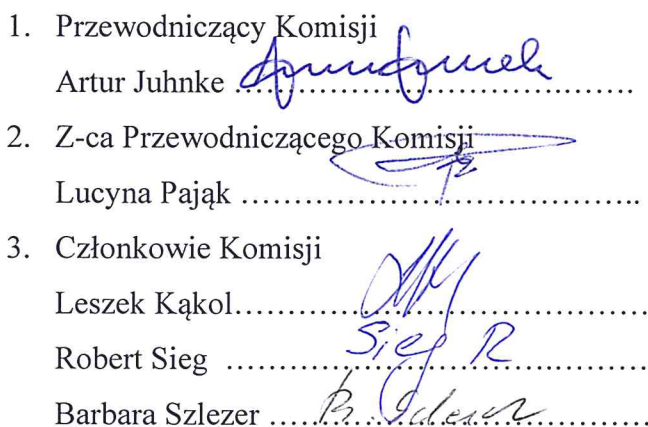 1. Przewodniczący Komisji
Artur Juhnke ……………………………….
2. Z-ca Przewodniczącego Komisji
Lucyna Pająk …………………………………..
3. Członkowie Komisji
Leszek Kąkol…………………………………
Robert Sieg ………………………………… Sieg R
Barbara Szlezer ………………………………… B. Szlezer